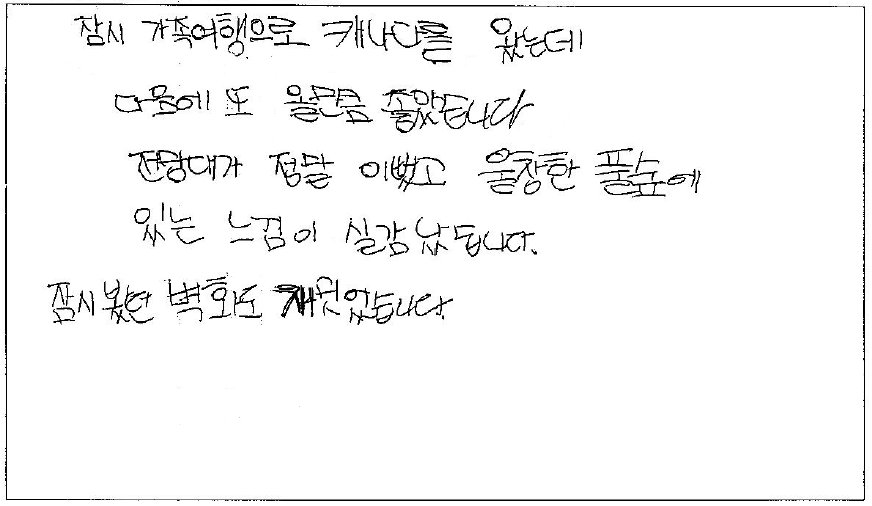 잠시 가족여행으로 캐나다를 왔는데
다음에 또 올만큼 좋았습니다
전망대가 정말 이뻤고 울창한 풀숲에
있는 느낌이 실감났습니다.
잠시봤던 벽화도 재밌었습니다.